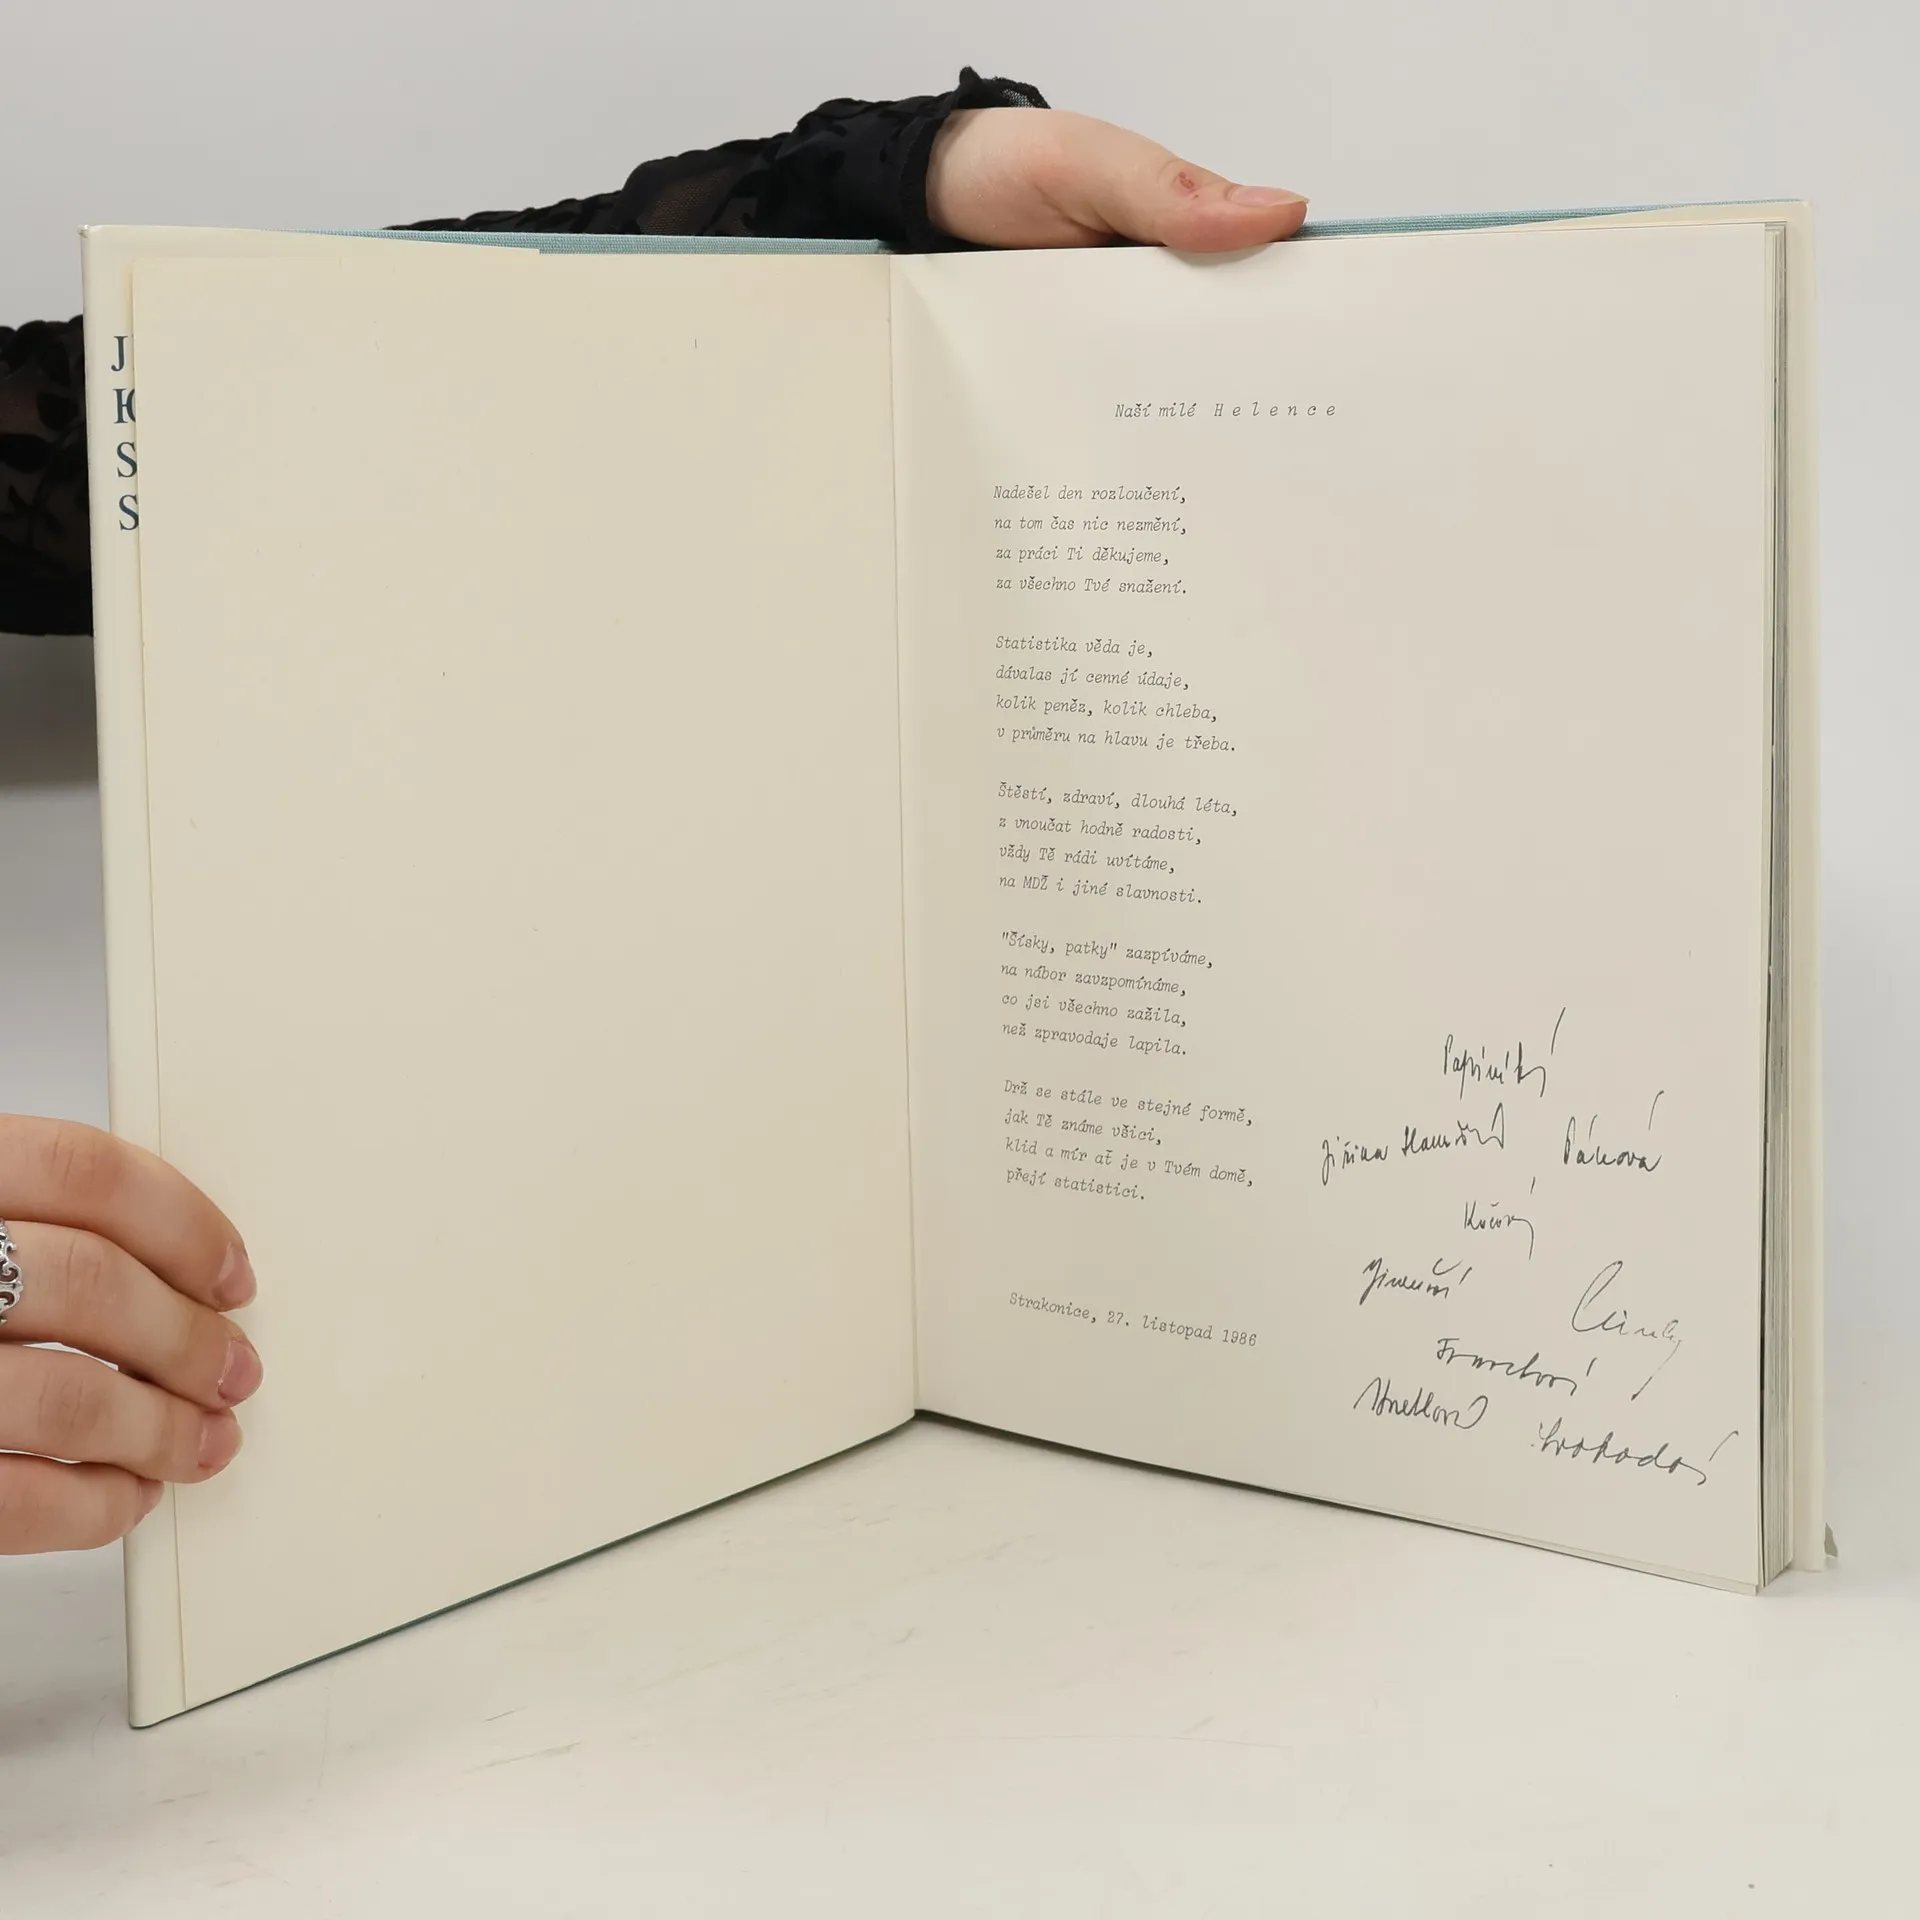 Naší milé H e l e n c e
Nadešel den rozloučení,
na tom čas nic nezmění,
za práci Ti děkujeme,
za všechno Tvé snažení.
Statistika věda je,
dávalas jí cenné údaje,
kolik peněz, kolik chleba,
v průměru na hlavu je třeba.
Štěstí, zdraví, dlouhá léta,
z vnoučat hodně radosti,
vždy Tě rádi uvítáme,
na MDŽ i jiné slavnosti.
"Šísky, patky" zazpíváme,
na nábor zavzpomínáme,
co jsi všechno zažila,
než zpravodaje lapila.
Drž se stále ve stejné formě,
jak Tě známe všici,
klid a mír ať je v Tvém domě,
přejí statistici.
Strakonice, 27. listopad 1986
Jiřina
Pánová